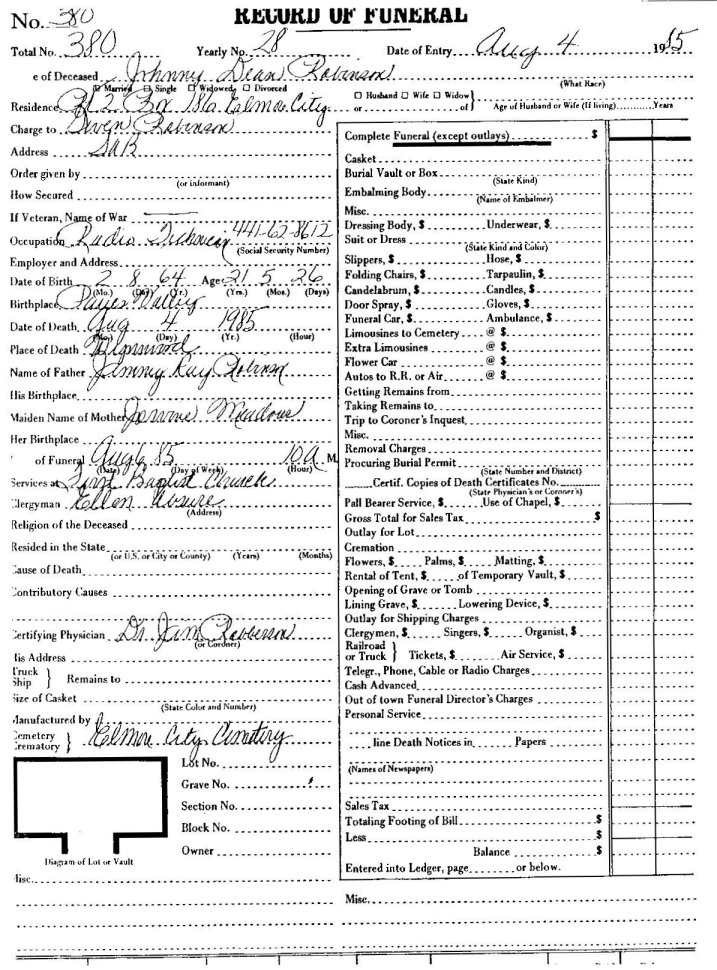 No. 380
RECORD OF FUNERAL
Total No. 380 Yearly No. 28 Date of Entry Aug 4 1985
e of Deceased Johnny Dean Robinson
(What Race)
Married Single Widowed Divorced
Husband Wife Widow
or of Age of Husband or Wife (If living) Years
Residence Rt 2 Box Elmore City
Charge to Robinson
Address SAB
Order given by
(or informant)
How Secured
If Veteran, Name of War
Occupation Radio 441-62-8612
(Social Security Number)
Employer and Address
Date of Birth 2 8 64 Age 21 5 26
(Mo.) (Day) (Yr.) (Yrs.) (Mos.) (Days)
Birthplace Pauls Valley
Date of Death Aug 4 1985
(Mo.) (Day) (Yr.) (Hour)
Place of Death
Name of Father Jimmy Ray Robinson
His Birthplace
Maiden Name of Mother Meadows
Her Birthplace
of Funeral Aug 6 85 10 A M.
(Date) (Day of Week) (Hour)
Services at First Baptist Church
Clergyman
(Address)
Religion of the Deceased
Resided in the State
(or U.S. or City or County) (Years) (Months)
Cause of Death
Contributory Causes
Certifying Physician Dr. Jim
(or Coroner)
His Address
Truck
Ship } Remains to
Size of Casket
(State Color and Number)
Manufactured by
Cemetery
Crematory } Elmore City Cemetery
Lot No.
Grave No.
Section No.
Block No.
Owner
Diagram of Lot or Vault
Misc.
Complete Funeral (except outlays) $
Casket
Burial Vault or Box
(State Kind)
Embalming Body
(Name of Embalmer)
Misc.
Dressing Body, $ Underwear, $
Suit or Dress
(State Kind and Color)
Slippers, $ Hose, $
Folding Chairs, $ Tarpaulin, $
Candelabrum, $ Candles, $
Door Spray, $ Gloves, $
Funeral Car, $ Ambulance, $
Limousines to Cemetery @ $
Extra Limousines @ $
Flower Car @ $
Autos to R.R. or Air @ $
Getting Remains from
Taking Remains to
Trip to Coroner's Inquest
Misc.
Removal Charges
Procuring Burial Permit
(State Number and District)
Certif. Copies of Death Certificates No.
(State Physician's or Coroner's)
Pall Bearer Service, $ Use of Chapel, $
Gross Total for Sales Tax $
Outlay for Lot
Cremation
Flowers, $ Palms, $ Matting, $
Rental of Tent, $ of Temporary Vault, $
Opening of Grave or Tomb
Lining Grave, $ Lowering Device, $
Outlay for Shipping Charges
Clergymen, $ Singers, $ Organist, $
Railroad
or Truck } Tickets, $ Air Service, $
Telegr., Phone, Cable or Radio Charges
Cash Advanced
Out of town Funeral Director's Charges
Personal Service
line Death Notices in Papers
(Names of Newspapers)
Sales Tax
Totaling Footing of Bill $
Less $
Balance $
Entered into Ledger, page or below.
Misc.